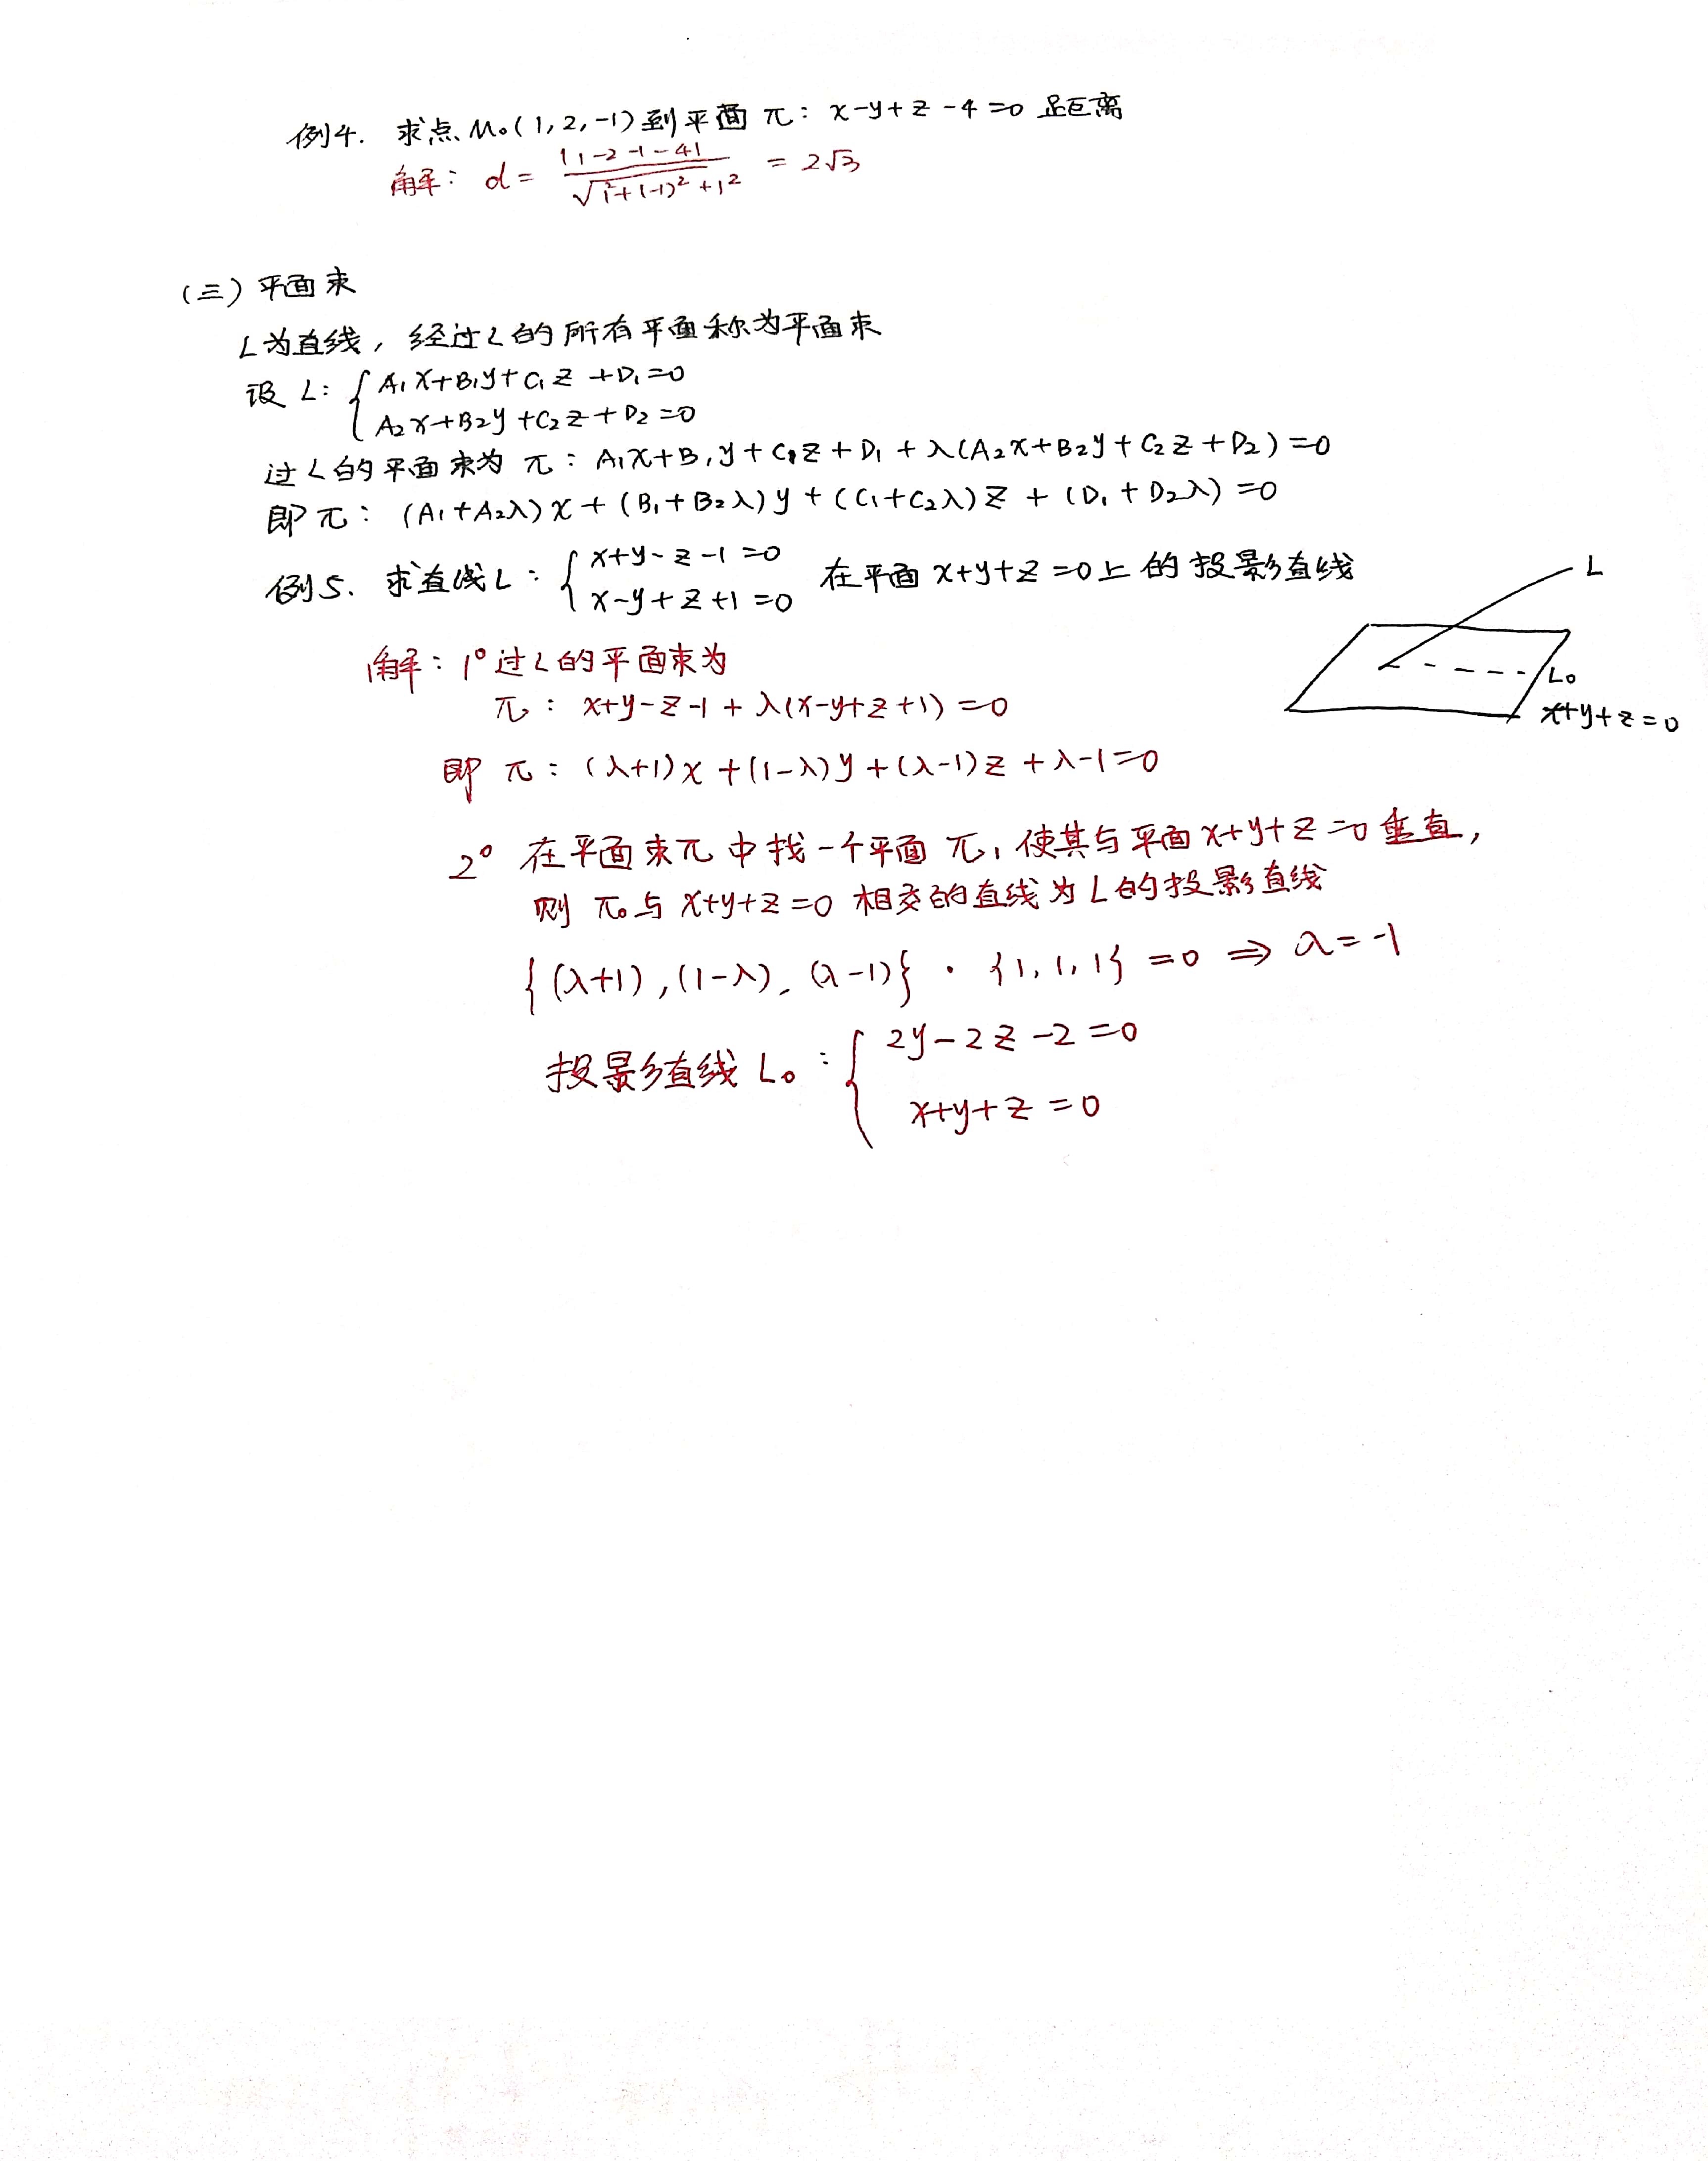 例4. 求点M₀(1,2,-1)到平面π: x-y+z-4=0 距离
解: d= |1-2-1-4| / √(1²+(-1)²+1²) = 2√3
(三) 平面束
L为直线, 经过L的所有平面称为平面束
设 L: { A₁x+B₁y+C₁z+D₁=0
A₂x+B₂y+C₂z+D₂=0
过L的平面束为 π: A₁x+B₁y+C₁z+D₁+λ(A₂x+B₂y+C₂z+D₂)=0
即π: (A₁+A₂λ)x+(B₁+B₂λ)y+(C₁+C₂λ)z+(D₁+D₂λ)=0
例5. 求直线L: { x+y-z-1=0 在平面x+y+z=0上的投影直线
x-y+z+1=0
L
L₀
x+y+z=0
解: 1° 过L的平面束为
π: x+y-z-1+λ(x-y+z+1)=0
即 π: (λ+1)x+(1-λ)y+(λ-1)z+λ-1=0
2° 在平面束π中找一个平面π, 使其与平面x+y+z=0垂直,
则 π₀与x+y+z=0 相交的直线为L的投影直线
{(λ+1),(1-λ),(λ-1)}·{1,1,1}=0 ⇒ λ=-1
投影直线L₀: { 2y-2z-2=0
x+y+z=0